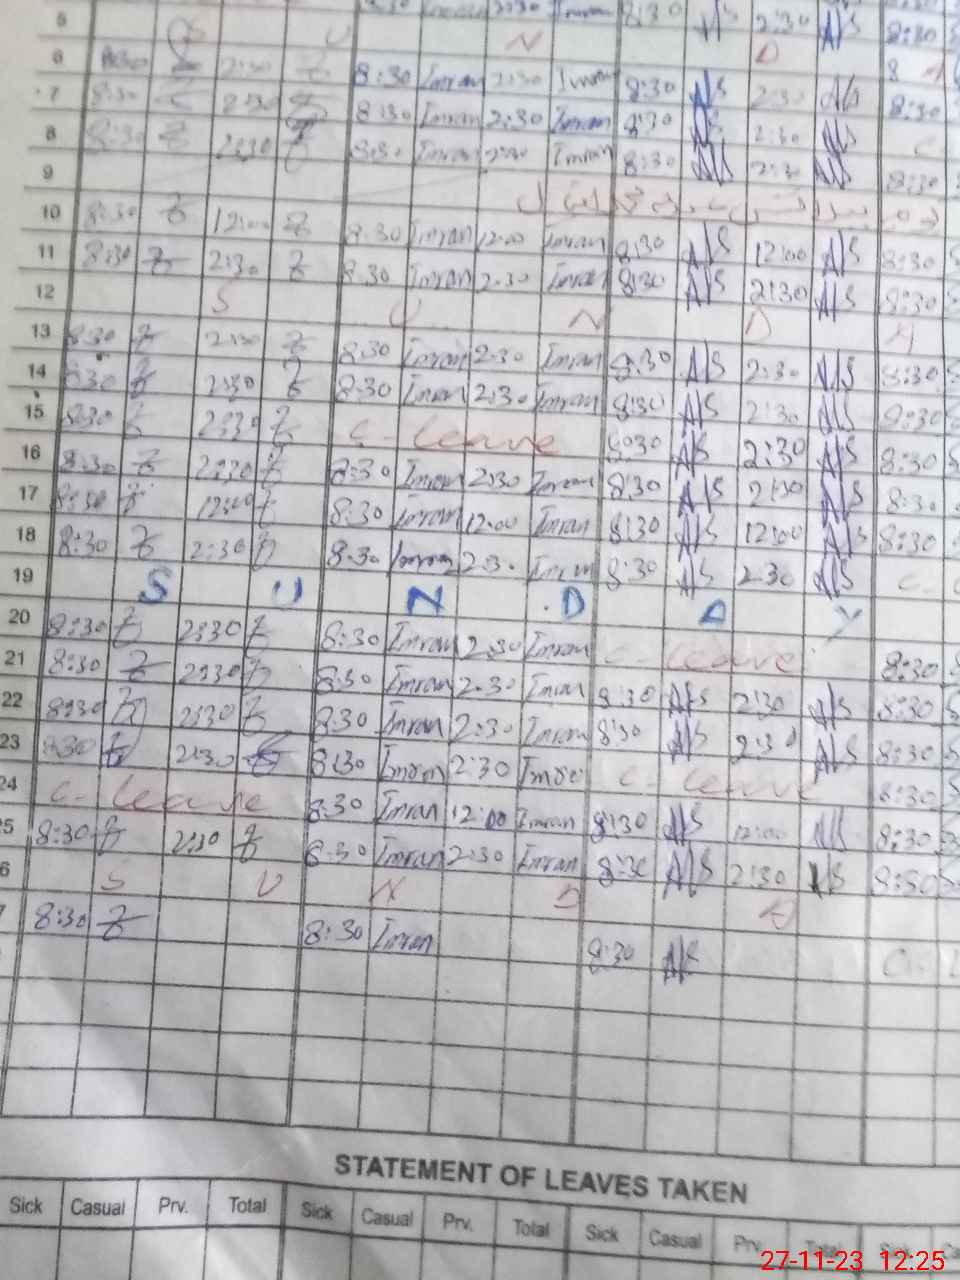 5 8:30 Imran 2:30 Imran 8:30 A/S 2:30 A/S 8:30
U N D A
6 8:30 2:30 8:30 Imran 2:30 Imran 8:30 A/S 2:30 A/S 8:30
7 8:30 2:30 8:30 Imran 2:30 Imran 8:30 A/S 2:30 A/S
8 8:30 2:30 8:30 Imran 2:30 Imran 8:30 A/S 2:30 A/S 8:30
9
10 8:30 12:00 8:30 Imran 12:00 Imran 8:30 A/S 12:00 A/S 8:30
11 8:30 2:30 8:30 Imran 2:30 Imran 8:30 A/S 2:30 A/S 8:30
12 S U N D A
13 8:30 2:30 8:30 Imran 2:30 Imran 8:30 A/S 2:30 A/S 8:30
14 8:30 2:30 8:30 Imran 2:30 Imran 8:30 A/S 2:30 A/S 8:30
15 8:30 2:30 C-leave 8:30 A/S 2:30 A/S 8:30
16 8:30 2:30 8:30 Imran 2:30 Imran 8:30 A/S 2:30 A/S 8:30
17 8:30 12:00 8:30 Imran 12:00 Imran 8:30 A/S 12:00 A/S 8:30
18 8:30 2:30 8:30 Imran 2:30 Imran 8:30 A/S 2:30 A/S
19 S U N D A Y
20 8:30 2:30 8:30 Imran 2:30 Imran C-leave 8:30
21 8:30 2:30 8:30 Imran 2:30 Imran 8:30 A/S 2:30 A/S 8:30
22 8:30 2:30 8:30 Imran 2:30 Imran 8:30 A/S 2:30 A/S 8:30
23 8:30 2:30 8:30 Imran 2:30 Imran C-leave 8:30
24 C-leave 8:30 Imran 12:00 Imran 8:30 A/S 12:00 A/S 8:30
5 8:30 2:30 8:30 Imran 2:30 Imran 8:30 A/S 2:30 A/S 8:30
6 S U N D A
7 8:30 8:30 Imran 8:30 A/S
STATEMENT OF LEAVES TAKEN
Sick Casual Prv. Total Sick Casual Prv. Total Sick Casual Prv. Total Sick Ca
27-11-23 12:25